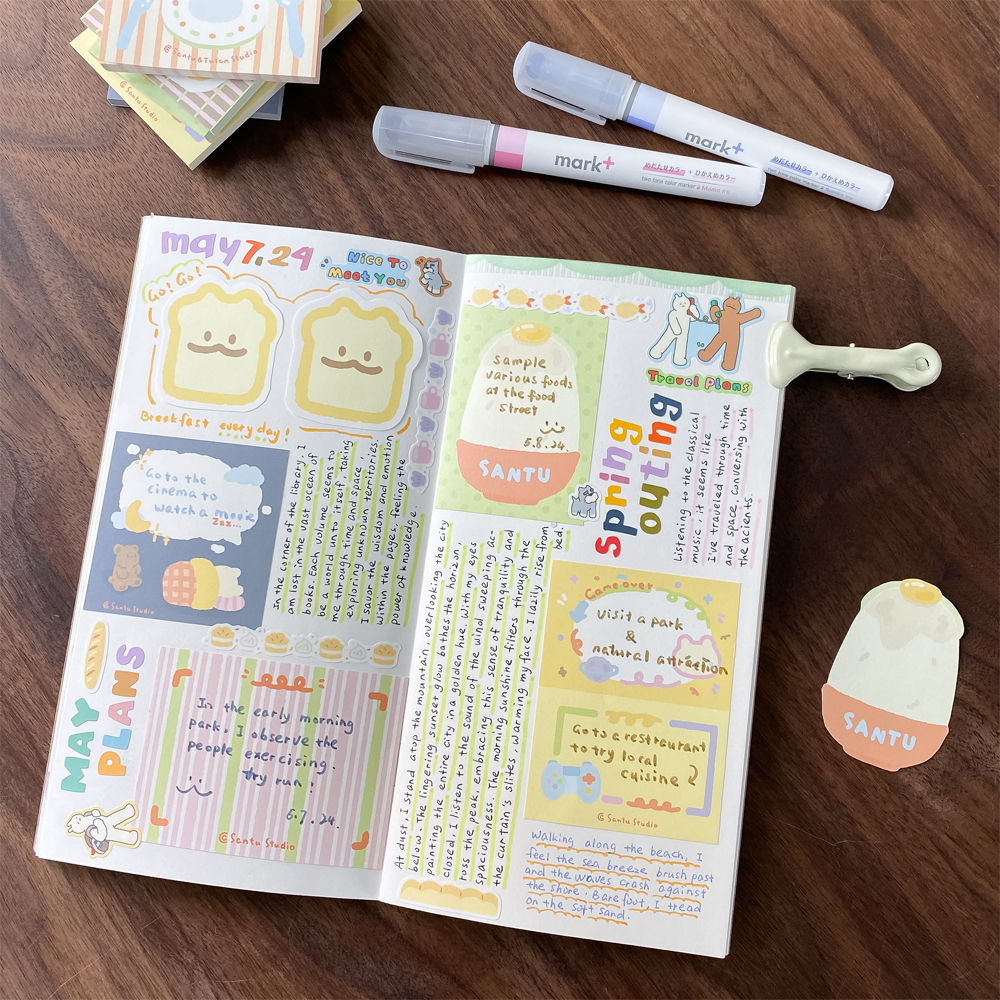 ©Santu&Tutan Studio
©Santu Studio
mark+
めだたせカラー + ひかえめカラー
Two tone color marker
mark+
めだたせカラー + ひかえめカラー
Two tone color marker
may 7.24
Nice To
Meet You
Go! Go!
Breakfast every day!
Go to the
cinema to
watch a movie
Zzz...
©Santu Studio
In the corner of the library, I
am lost in the vast ocean of
books. Each volume seems to
be a world unto itself, taking
me through time and space,
exploring unknown territories.
I savor the wisdom and emotion
within the pages, feeling the
power of knowledge.
MAY
PLANS
In the early morning
park, I observe the
people exercising.
try run!
6.7.24.
©Santu Studio
sample
various foods
at the food
street
5.8.24.
SANTU
Travel Plans
spring
outing
Listening to the classical
music, it seems like
I've traveled through time
and space, conversing with
the acients.
At dust, I stand atop the mountain, overlooking the city
below. The lingering sunset glow bathes the horizon,
painting the entire city in a golden hue. With my eyes
closed, I listen to the sound of the wind sweeping ac-
ross the peak, embracing this sense of tranquility and
spaciousness. The morning sunshine filters through the
the curtain's slites, warming my face. I lazily rise from
bed.
Game over
Visit a park
&
natural attraction
Go to a restraurant
to try local
cuisine
©Santu Studio
Walking along the beach, I
feel the sea breeze brush past
and the waves crash against
the shore. Barefoot, I tread
on the soft sand.
SANTU